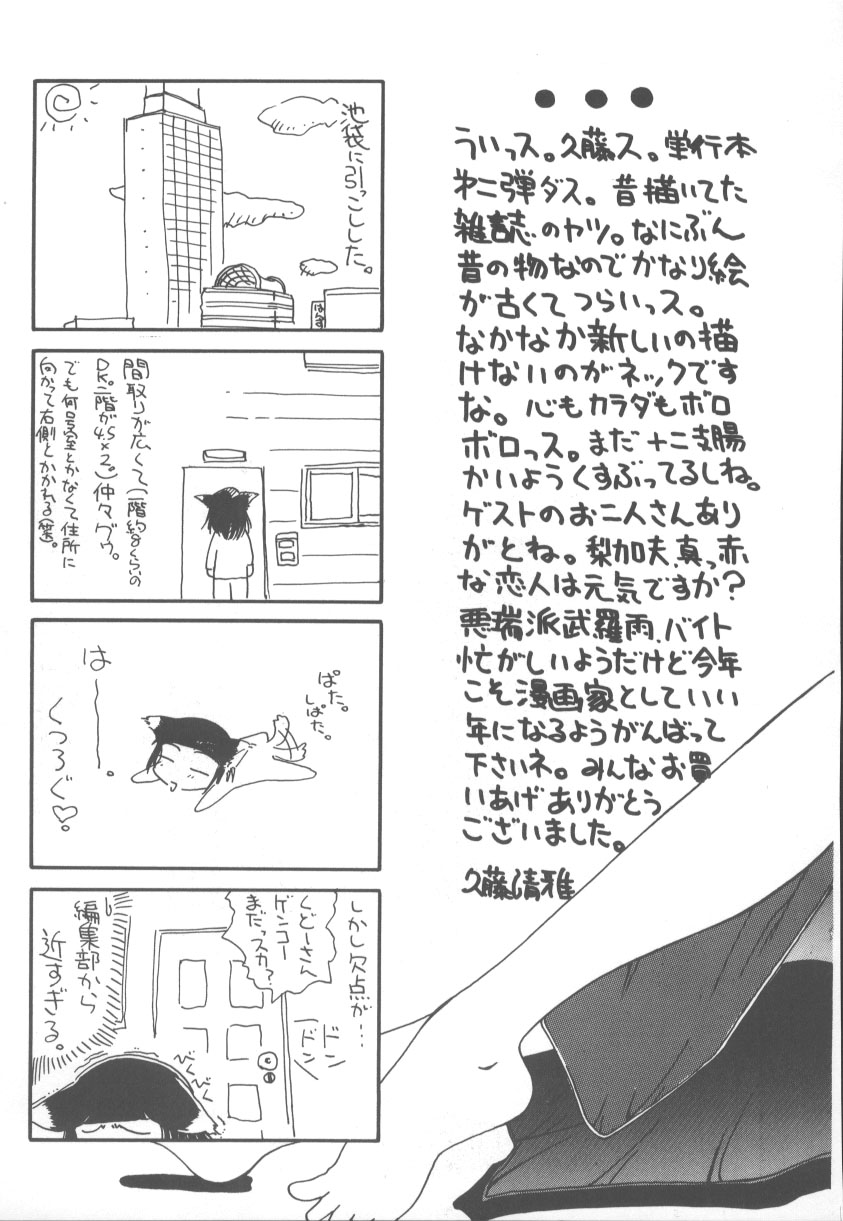 ういっス。久藤ス。単行本
第二弾ダス。昔描いてた
雑誌のヤツ。なにぶん
昔の物なのでかなり絵
が古くてつらいっス。
なかなか新しいの描
けないのがネックです
な。心もカラダもボロ
ボロっス。まだ十二支腸
かいようくすぶってるしね。
ゲストのお二人さんあり
がとね。梨加夫、真っ赤
な恋人は元気ですか?
悪瑞派武羅雨、バイト
忙がしいようだけど今年
こそ漫画家としていい
年になるようがんばって
下さいネ。みんなお買
いあげありがとう
ございました。
久藤清雅
池袋に引っこしした。
はんず
間取りが広くて(一階約8くらいの
DK。二階が4.5×2。)仲々グゥ。
でも何号室とかなくて住所に
向かって右側とかかれる(笑)。
ぱた。
しぱた。
はーー。
くつろぐ♡。
しかし欠点が…
くどーさん
ゲンコー
まだっスカ?
ドン
ドン
びくびく
編集部から
近すぎる。